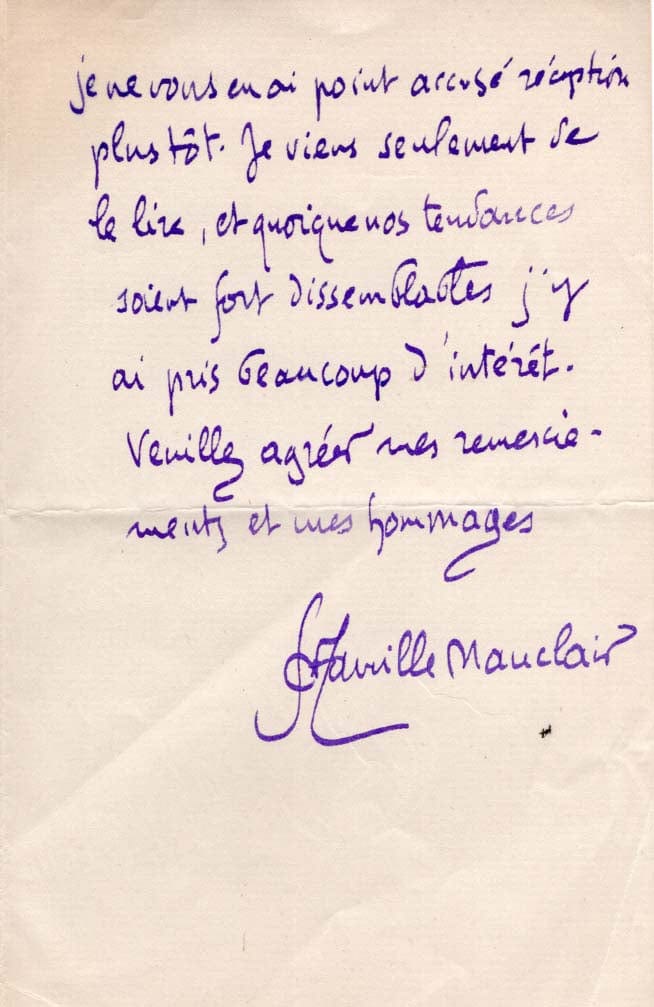 je ne vous en ai point accusé réception
plus tôt. Je viens seulement de
le lire, et quoique nos tendances
soient fort dissemblables j'y
ai pris beaucoup d'intérêt.
Veuillez agréer mes remercie-
ments et mes hommages
Camille Mauclair